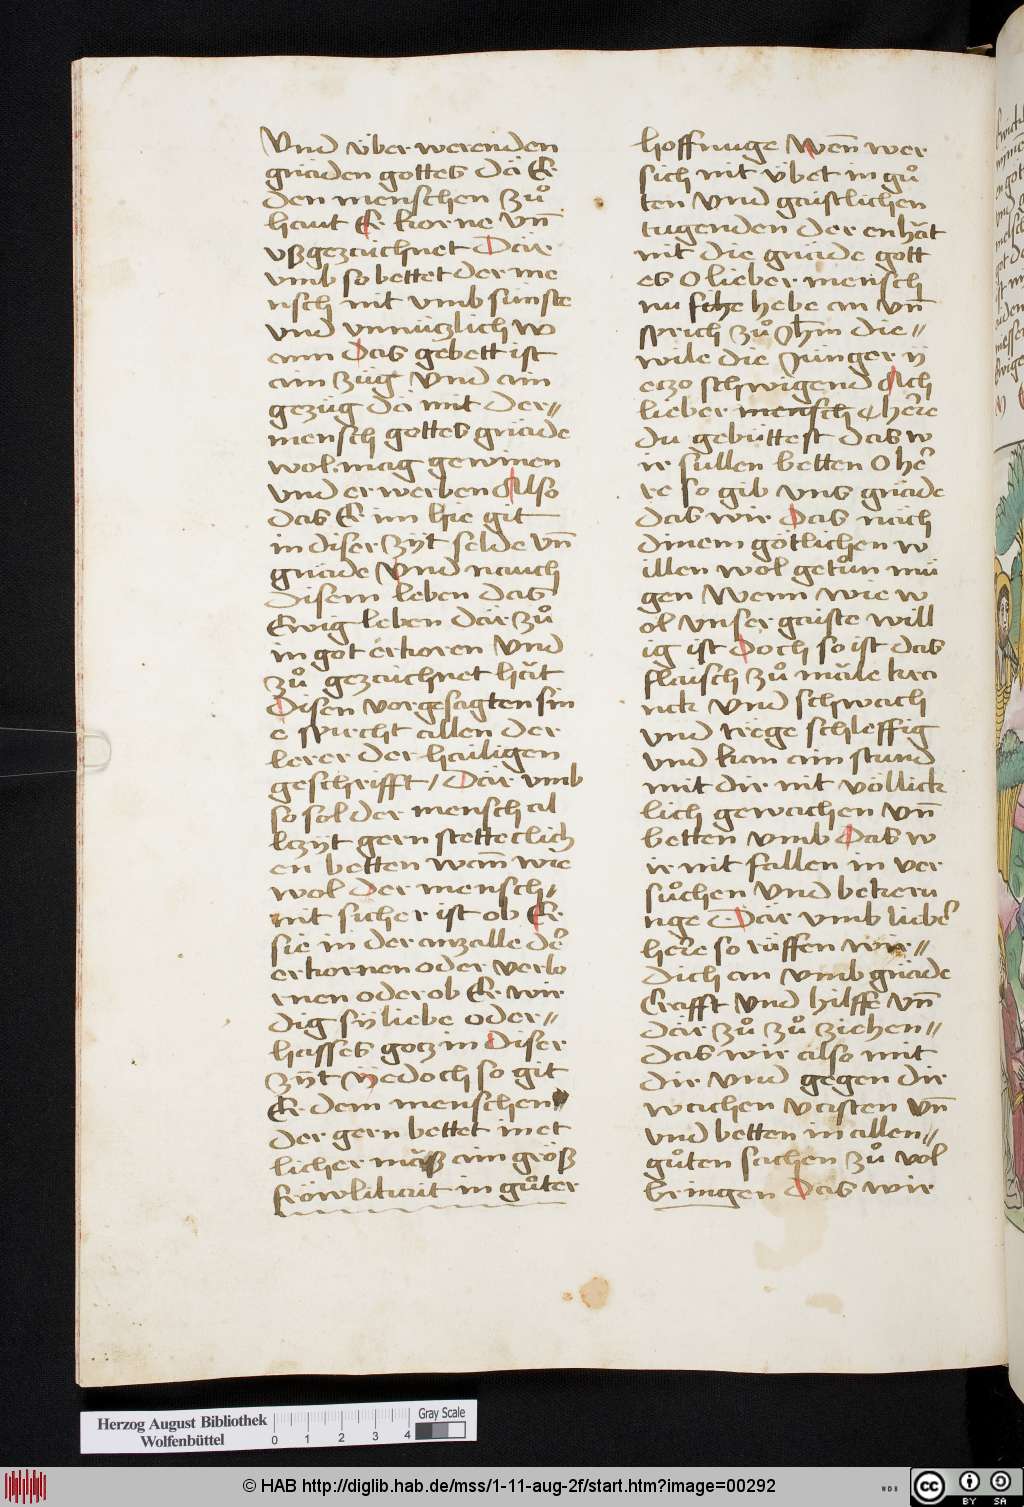 Vnd v̈ber werenden
gnäden gottes dä Er
den menschen zů
haut Er korne vn̄
vßgezaichnet Där
vmb so bettet der me
nsch nit vmb sünste
vnd vnnüczlich w
ann Das gebett ist
ain züg Vnd ain
gezüg dä mit der〃
mensch gottes gnäde
wol mag gewinen
vnd er werben Also
das Er im hie git
in diser zÿt selde vn̄
gnäde Vnd nauch
disem leben das
Ewig leben där zů
in got erkoren Vnd
zů gezaichnet hăt
Disen vorgesagten sin
e spricht allen der
lerer der hailigen
geschrifft / Där vmb
so sol der mensch al
lezÿt gern stetteclich
en betten wann̄ wie
wol der mensch〃
nit sicher ist ob Er
sie in der anzalle der
erkornen oder verlo
rnen oder ob Er wir
dig sÿ liebe oder〃
hasses gocz in Diser
zÿt ÿedoch so git
Er dem menschen
der gern bettet in et
licher mäß ain größ
fröwlikait in gůter
hoffnuge Wen̄ wer
sich nit v̈bet in gů
ten Vnd gaistlichen
tugenden der enhăt
nit die gnäde gott
es O lieber mensch
nu hebe an vn̄
sprich zů Ihm die〃
wile die Jünger ÿ
eczo schwigend Ach
lieber mensch herre
du gebüttest das w
ir süllen betten O her
re so gib vns gnäde
das wir Das näch
dinem götlichen w
illen wol getůn mü
gen Wenn wie w
ol vnser gaiste will
ig ist Doch so ist das
flaisch zů măle kra
nck vnd schwach
vnd träge schleffig
vnd kan ain stund
mit dir nit völlick
lich gewachen vn̄
betten vmb Das w
ir nit fallen in ver
sůchen vnd bekeru
nge Där vmb lieber
herre so rüffen wir〃
dich an vmb gnäde
Crafft Vnd hilffe vn̄
där zů zů ziehen〃
das wir also mit
dir vnd gegen dir
wachen vasten vn̄
vnd betten in allen〃
gůten sachen zů vol
bringen Das wir
Herzog August Bibliothek
Wolfenbüttel
0 1 2 3 4
Gray Scale
© HAB http://diglib.hab.de/mss/1-11-aug-2f/start.htm?image=00292
WDB
cc BY SA